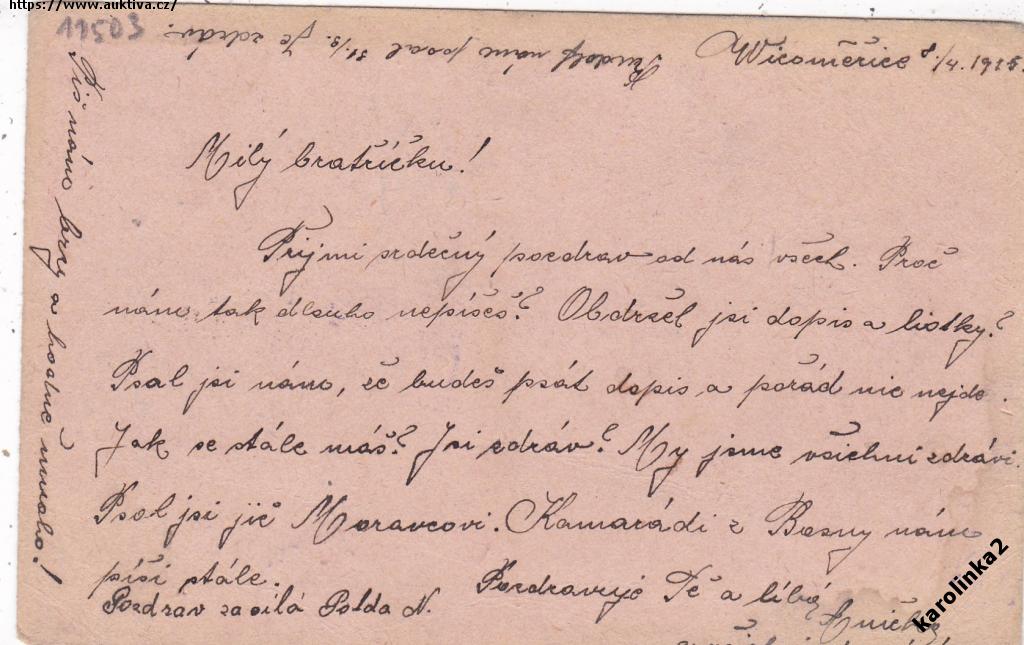 https://www.auktiva.cz/
11503
Rudolf nám psal 31/3. Je zdráv.
Vícoměřice 8./4. 1915.
Milý bratříčku!
Přijmi srdečný pozdrav od nás všech. Proč
nám tak dlouho nepíšeš? Obdržel jsi dopis a lístky?
Psal jsi nám, že budeš psát dopis a pořád nic nejde.
Jak se stále máš? Jsi zdráv? My jsme všichni zdrávi.
Psal jsi již Moravcovi. Kamarádi z Bosny nám
píší stále.
Pozdravuje Tě a líbá
Pozdrav zasílá Polda N.
Anička
Piš nám brzy a hodně mnoho!
karolinka2